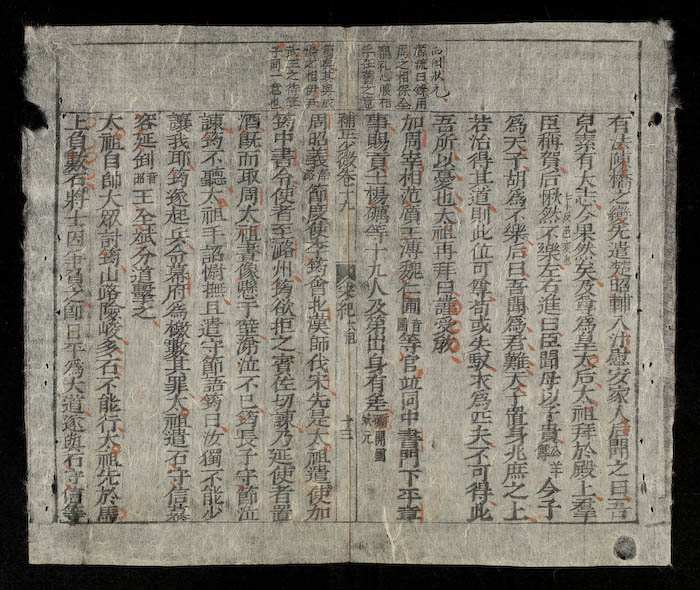 有法陳橋之變先遣楚昭輔入汴慰安家人后聞之曰吾
兒素有大志今果然矣及尊為皇太后太祖拜於殿上羣
臣稱賀后愀然不樂左右進曰臣聞母以子貴今子
為天子胡為不樂后曰吾聞為君難天子置身兆庶之上
若治得其道則此位可尊苟或失馭求為匹夫不可得此
吾所以憂也太祖再拜曰謹受教
加周宰相范質王溥魏仁圃等官並同中書門下平章
事賜言士楊礪等十九人及第出身有差
補正少微卷二九
宋紀 太祖
十三
周昭義節度使李筠會北漢師伐宋先是太祖遣使加
筠中書令使者至潞州筠欲拒之賓佐切諫乃延使者置
酒既而取周太祖畫像懸于壁涕泣不已筠長子守節泣
諫筠不聽太祖手詔慰撫且遣守節語筠曰汝獨不能少
讓我耶筠遂起兵令幕府為檄數其罪太祖遣石守信慕
容延釗王全斌分道擊之
太祖自帥大眾討筠山路險峻多石不能行太祖先於馬
上負數石將士因爭負之即日平為大道遂與石守信等